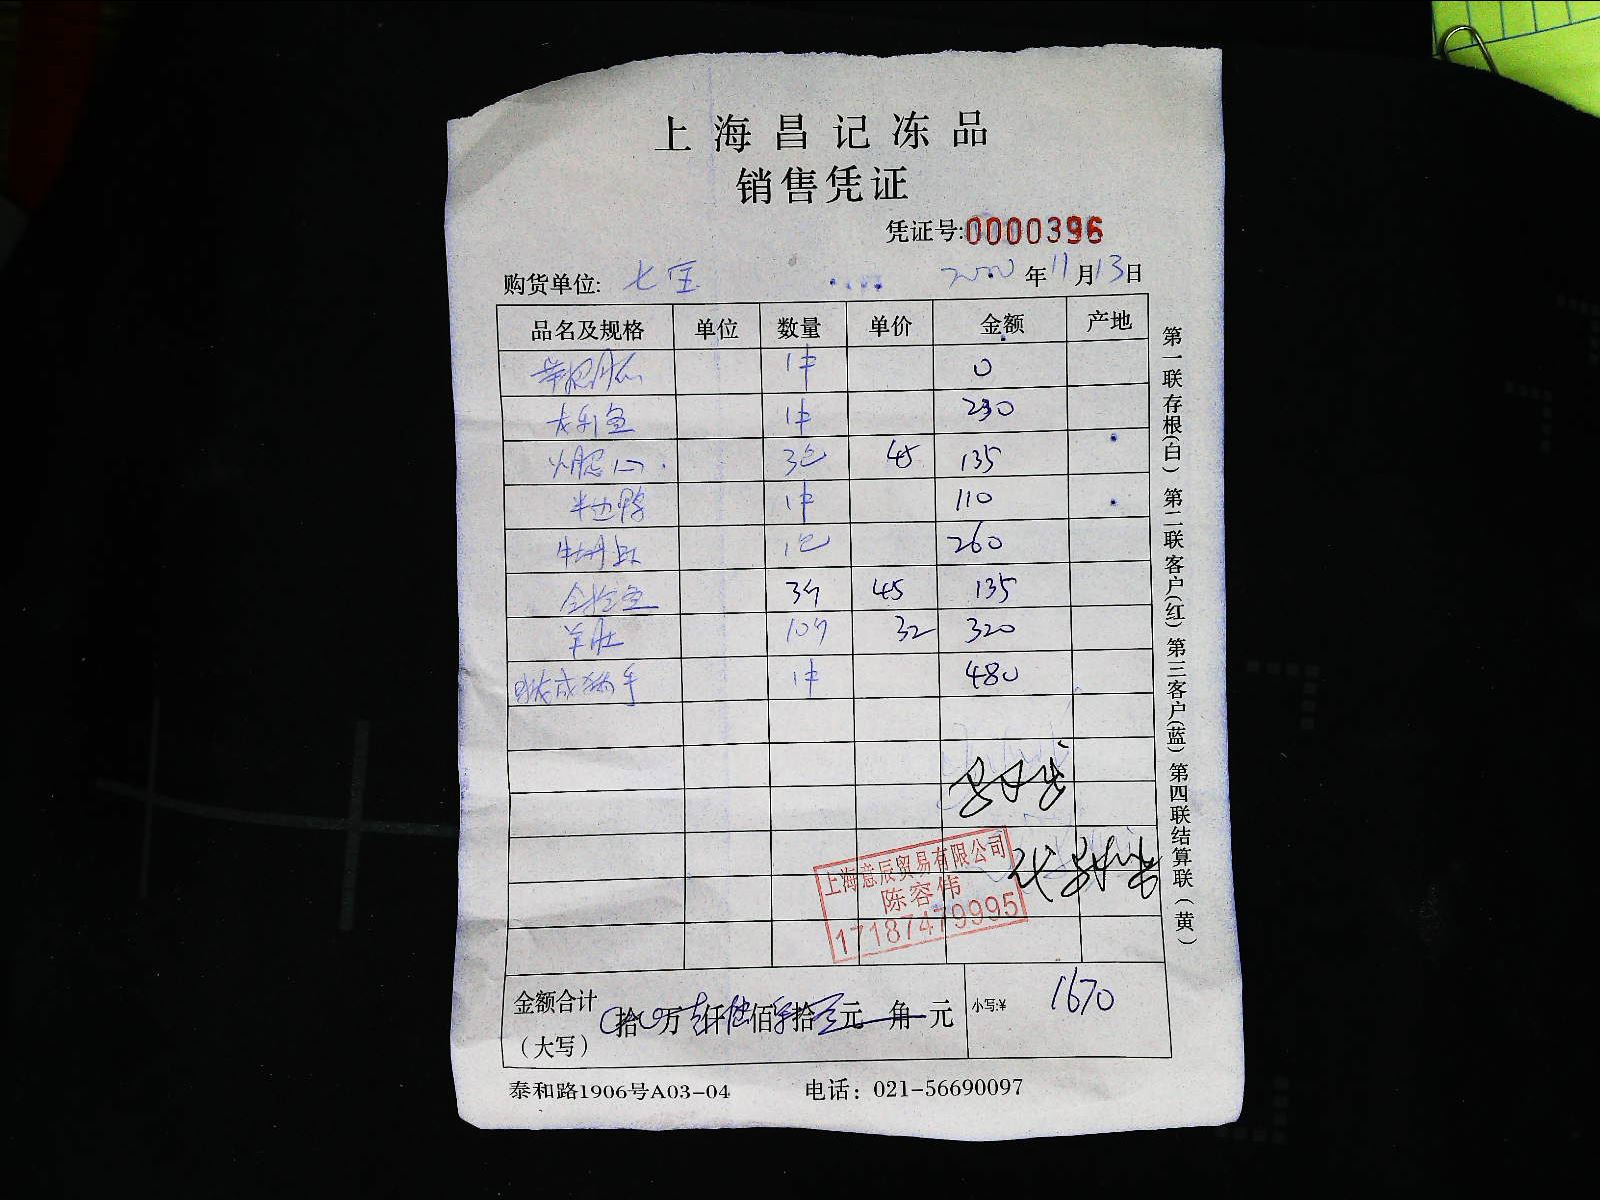 上海昌记冻品
销售凭证
凭证号:0000396
购货单位: 七宝 年 11 月 13 日
品名及规格 单位 数量 单价 金额 产地
1件 0
龙利鱼 1件 230
3包 45 135
半边鸭 1件 110
1包 260
3个 45 135
羊肚 10个 32 320
1件 480
上海意辰贸易有限公司
陈容伟
17187479995
金额合计
(大写)
拾 万 仟 佰 拾 元 角 元 小写:¥ 1670
泰和路1906号A03-04 电话: 021-56690097
第一联存根(白) 第二联客户(红) 第三客户(蓝) 第四联结算联(黄)